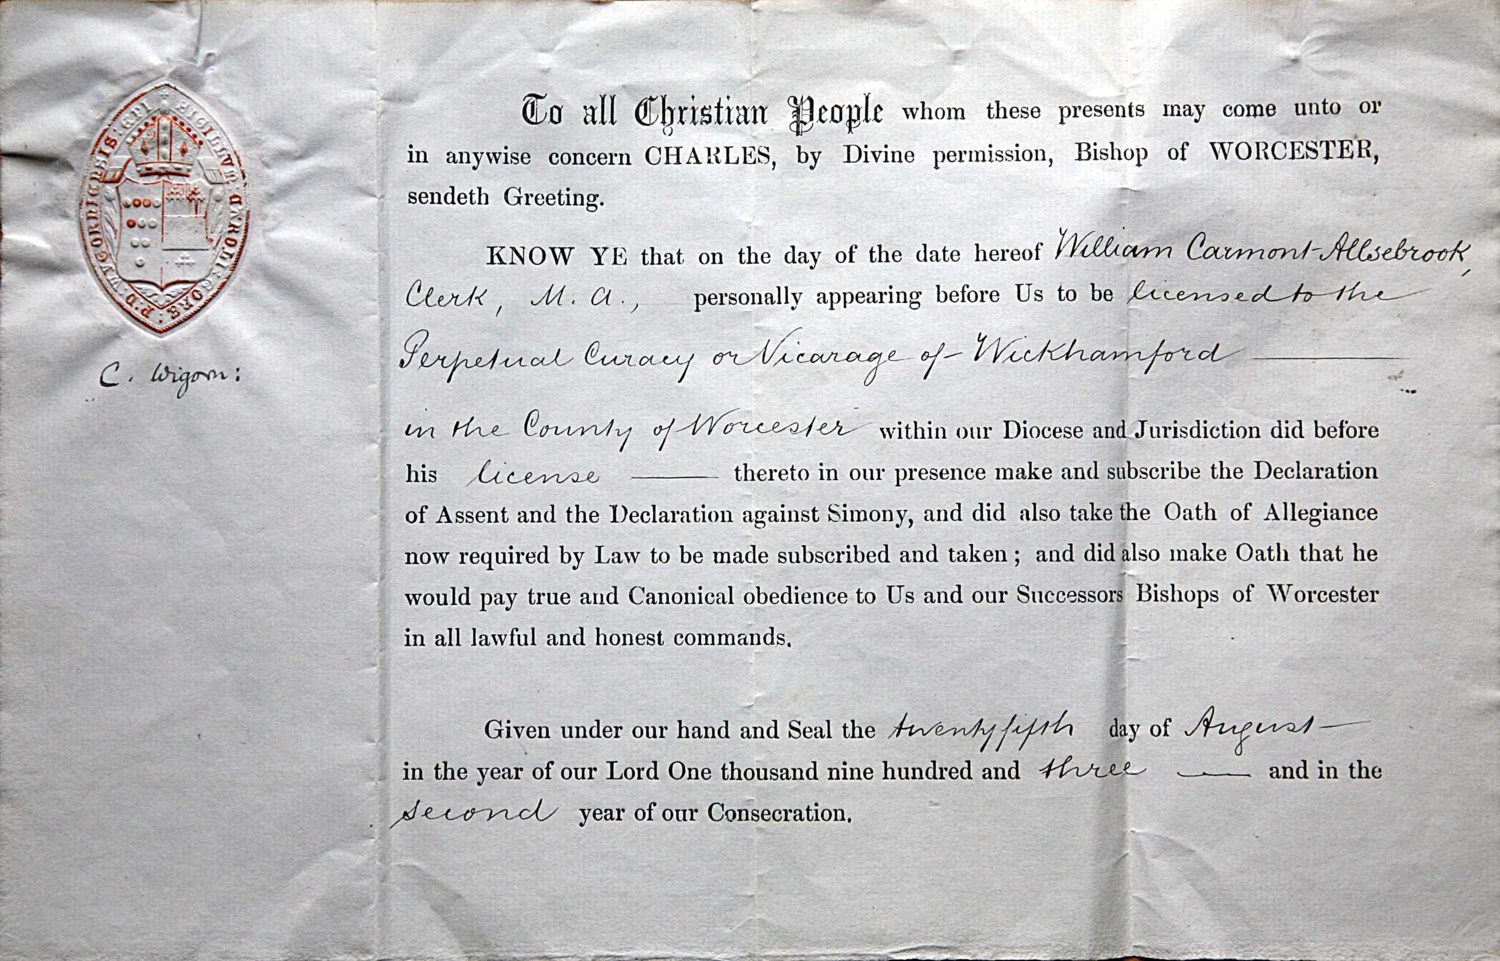 SIGILLVM CAROLI GORE P.D. WYGORNIENSIS EPI
C. Wigorn:
To all Christian People whom these presents may come unto or
in anywise concern CHARLES, by Divine permission, Bishop of WORCESTER,
sendeth Greeting.
KNOW YE that on the day of the date hereof William Carmont-Allsebrook,
Clerk, M.A., personally appearing before Us to be licensed to the
Perpetual Curacy or Vicarage of Wickhamford
in the County of Worcester within our Diocese and Jurisdiction did before
his license thereto in our presence make and subscribe the Declaration
of Assent and the Declaration against Simony, and did also take the Oath of Allegiance
now required by Law to be made subscribed and taken; and did also make Oath that he
would pay true and Canonical obedience to Us and our Successors Bishops of Worcester
in all lawful and honest commands.
Given under our hand and Seal the twentyfifth day of August
in the year of our Lord One thousand nine hundred and three and in the
second year of our Consecration.